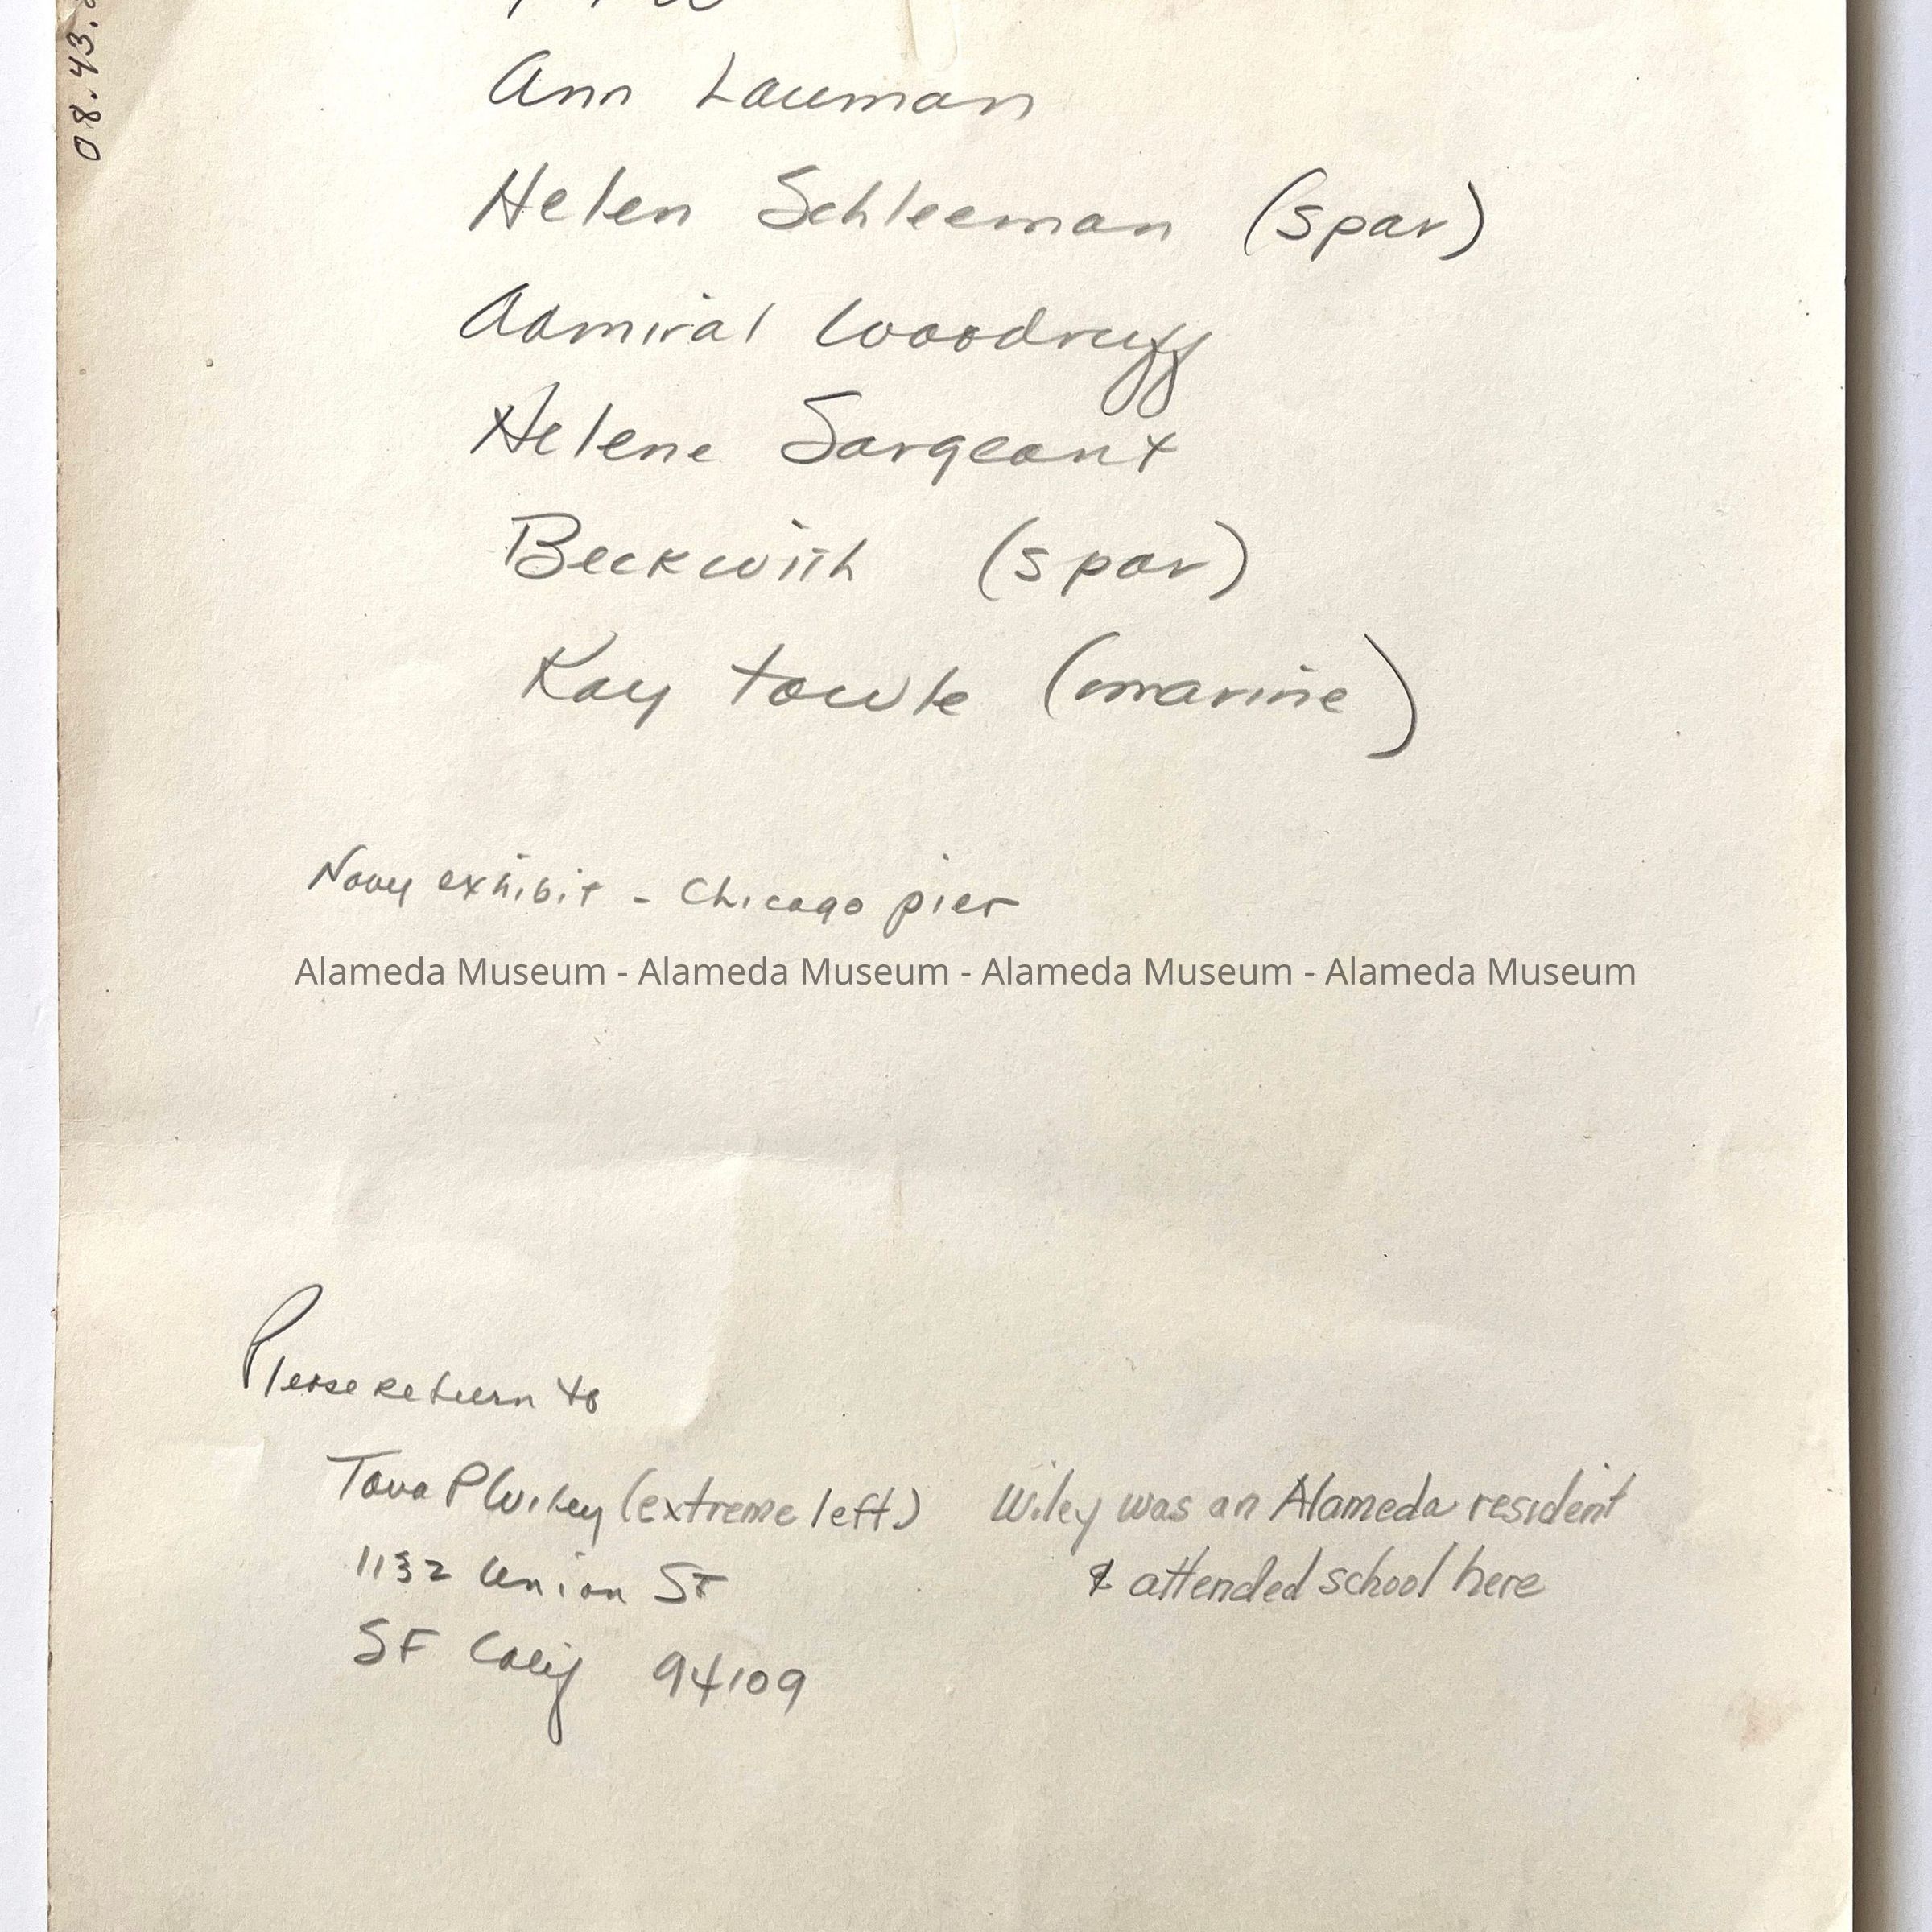 08.43.
Ann Lauman
Helen Schleeman (spar)
Admiral Woodruff
Helene Sargeant
Beckwith (spar)
Kay towle (marine)
Navy exhibit - Chicago pier
Alameda Museum - Alameda Museum - Alameda Museum - Alameda Museum
Please return to
Tova P Wiley (extreme left) Wiley was an Alameda resident
1132 Union St & attended school here
SF Calif 94109